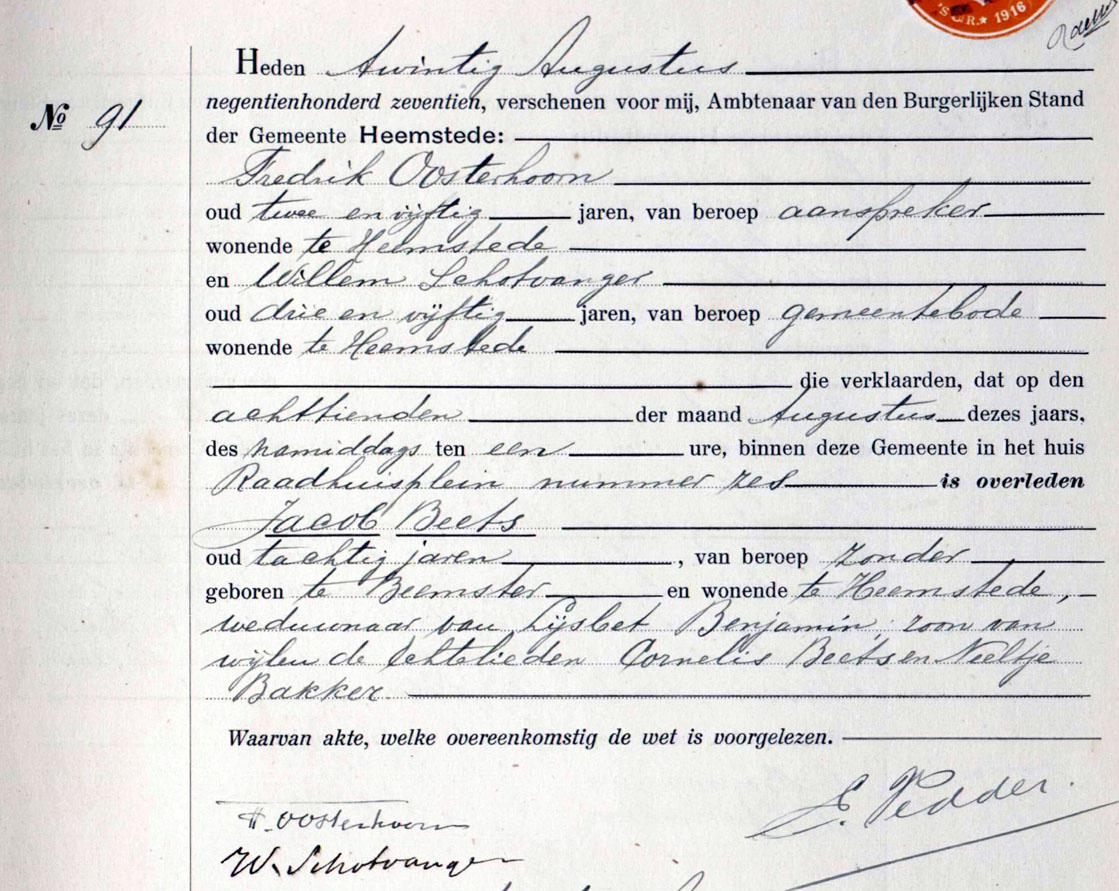 S.R.★ 1916
Heden twintig Augustus
negentienhonderd zeventien, verschenen voor mij, Ambtenaar van den Burgerlijken Stand
№ 91
der Gemeente Heemstede:
Fredrik Oosterhoorn
oud twee en vijftig jaren, van beroep aanspreker
wonende te Heemstede
en Willem Schotvanger
oud drie en vijftig jaren, van beroep gemeentebode
wonende te Heemstede
die verklaarden, dat op den
achttienden der maand Augustus dezes jaars,
des namiddags ten een ure, binnen deze Gemeente in het huis
Raadhuisplein nummer zes is overleden
Jacob Beets
oud tachtig jaren, van beroep zonder
geboren te Beemster en wonende te Heemstede,
weduwnaar van Lijsbet Benjamin, zoon van
wijlen de Echtelieden Cornelis Beets en Neeltje
Bakker
Waarvan akte, welke overeenkomstig de wet is voorgelezen.
E. Pedder.
F. Oosterhoorn
W. Schotvanger